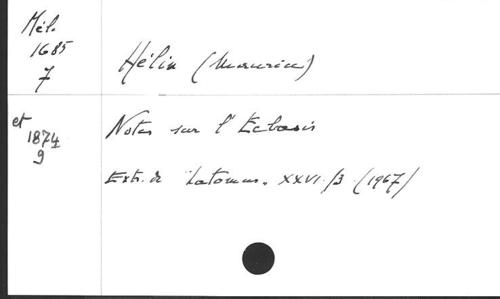 Mél.
1685
7
Hélin (Maurice)
et
1874
9
Notes sur l'Ecbasis
Extr. de Latomus. XXVI/3 (1967)